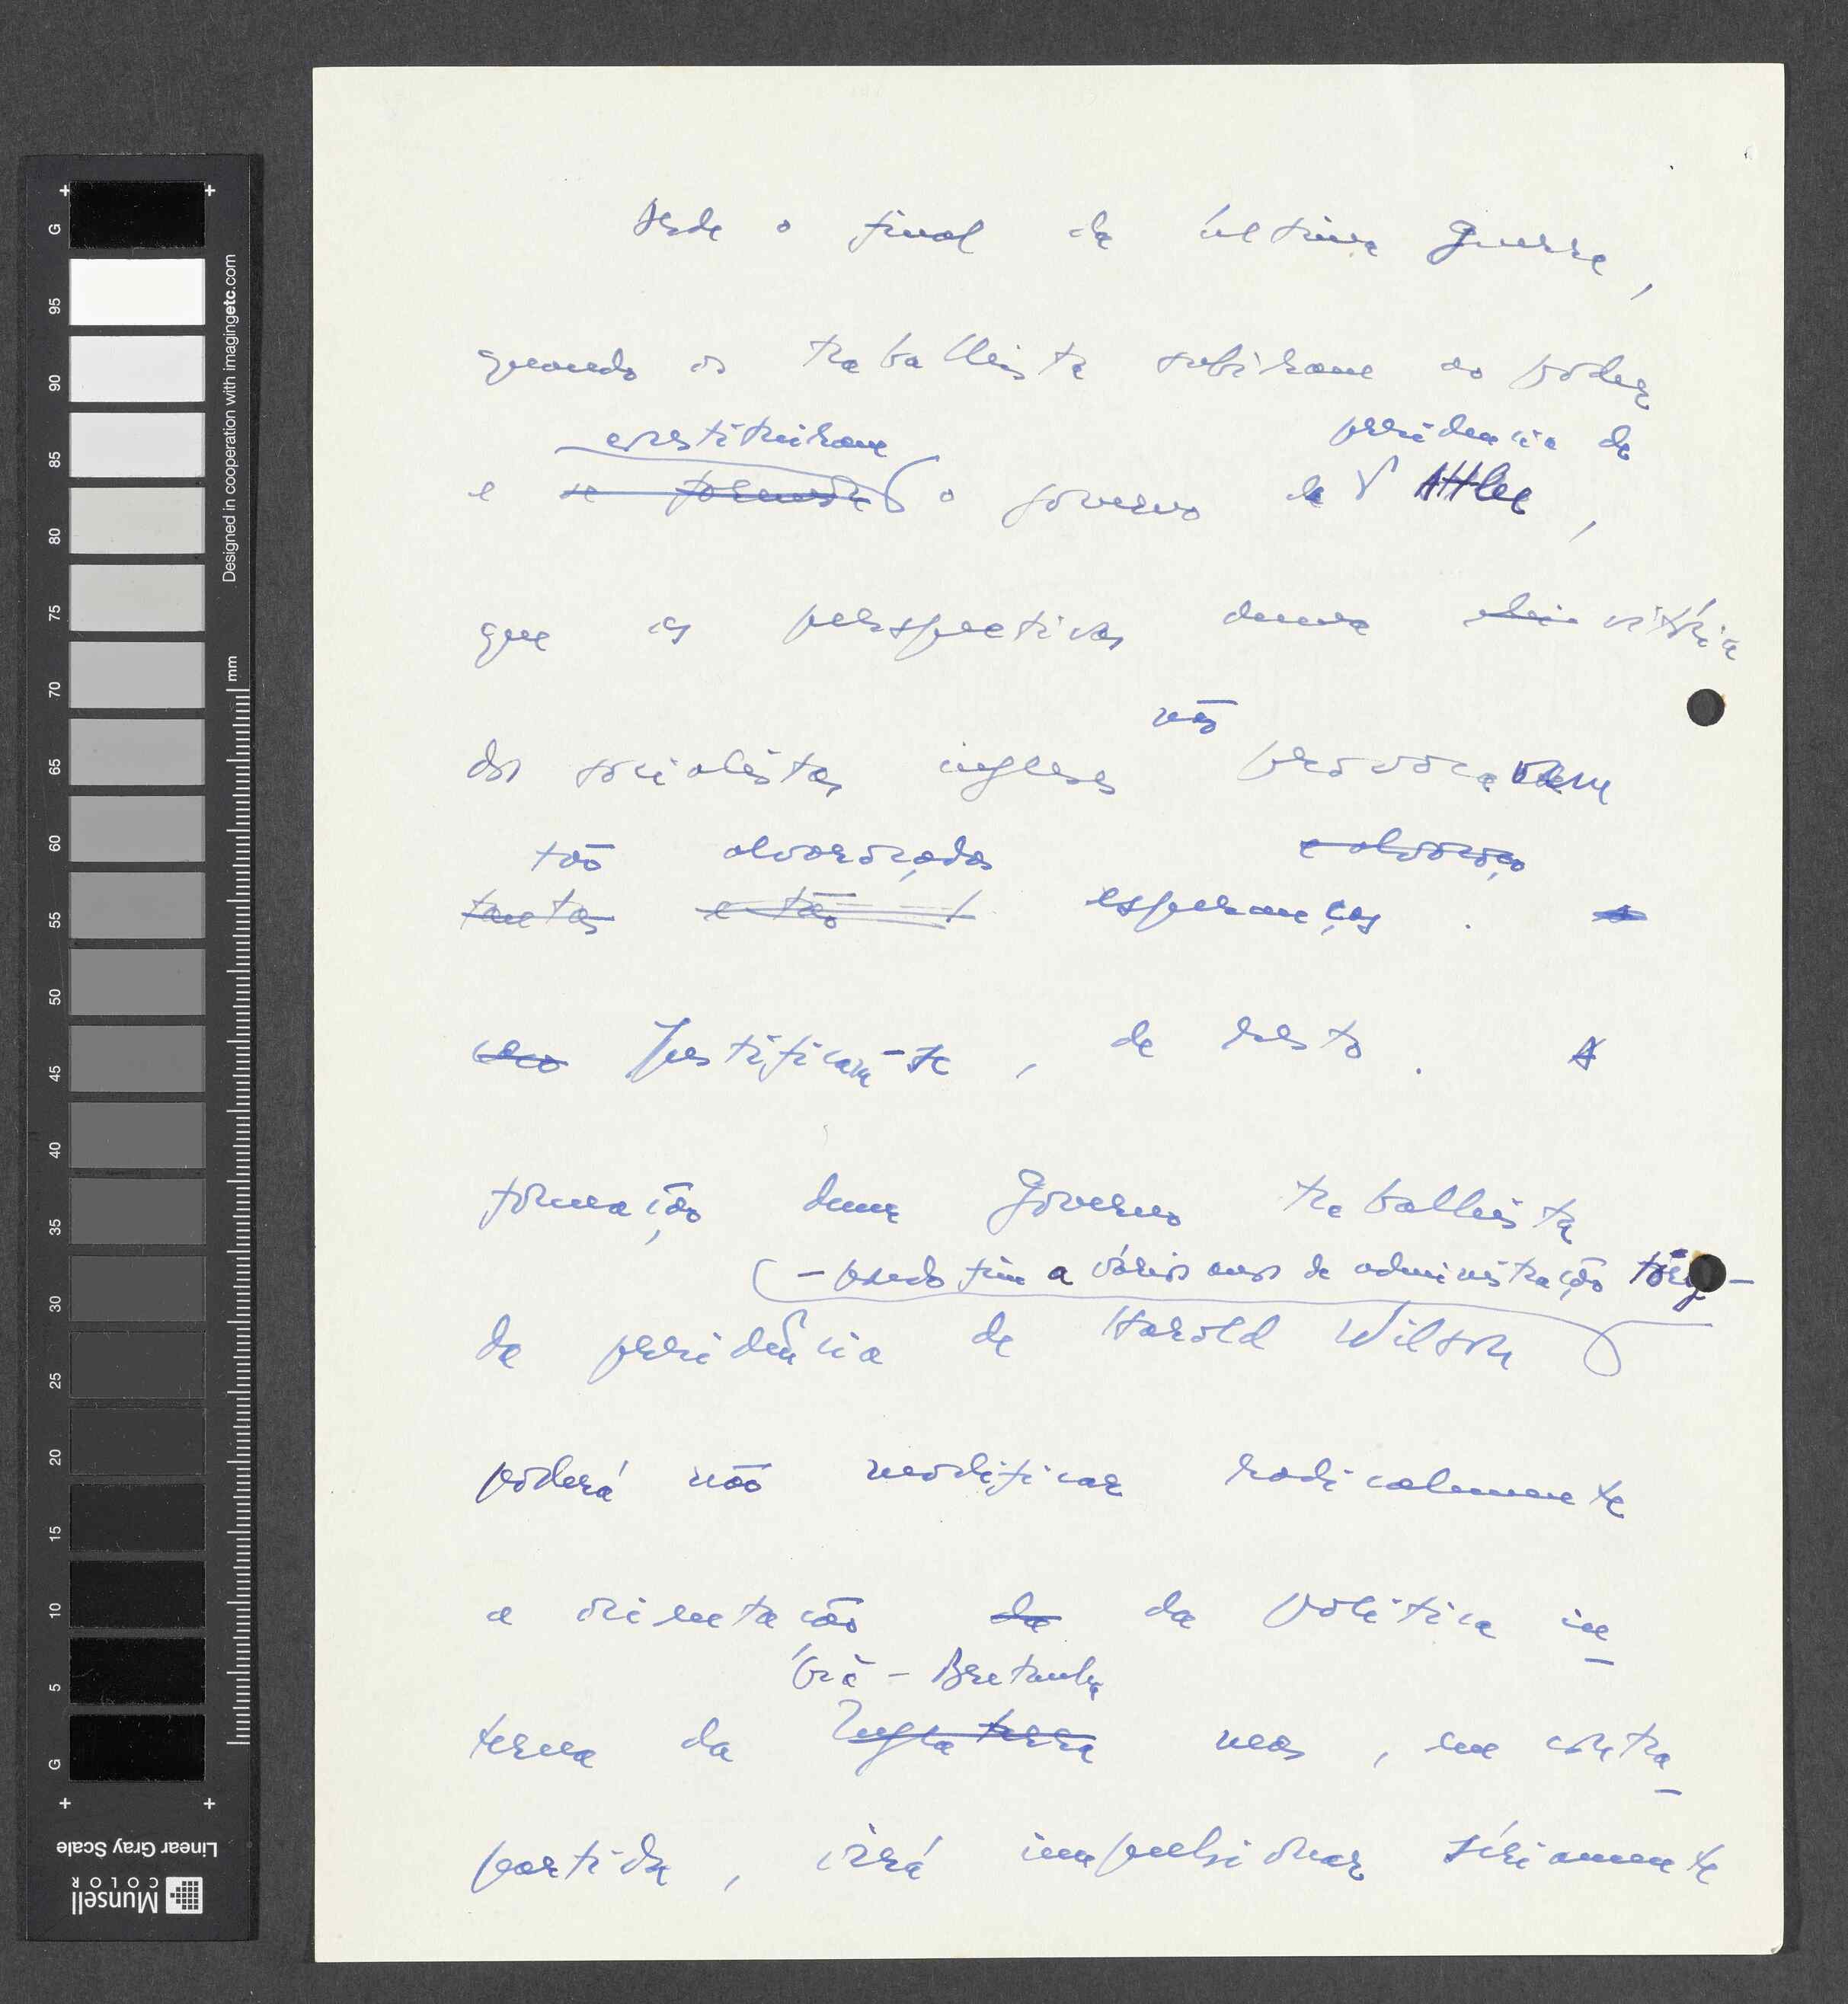 Desde o final da última Guerra,
quando os trabalhista subiram ao poder
constituiram presidencia de
e se formou o governo de Attlee,
que as perspectivas duma vitória
não
dos socialistas ingleses provocavam
tão alvoroçadas e alvoroço
tantas e tão esperanças.
Justificam-se, de resto. A
formação dum Governo trabalhista
- pondo fim a vários anos de administração tory -
da presidência de Harold Wilson
poderá não modificar radicalmente
a orientação da da política in
Grã-Bretanha
terna da Inglaterra mas, em contra
partida, irá impulsionar sèriamente
G
95
90
85
80
75
70
65
60
55
50
45
40
35
30
25
20
15
10
5
G
Designed in cooperation with imagingetc.com
mm
Linear Gray Scale
Munsell
COLOR